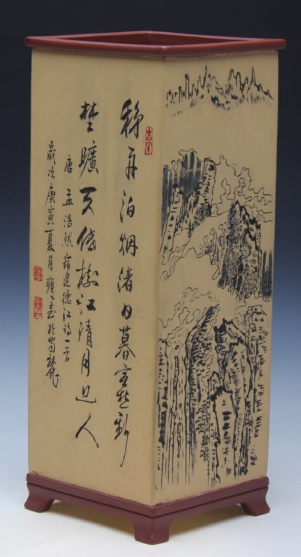 移舟泊烟渚日暮客愁新
野旷天低树江清月近人
唐孟浩然宿建德江诗一首
岁次庚寅夏月